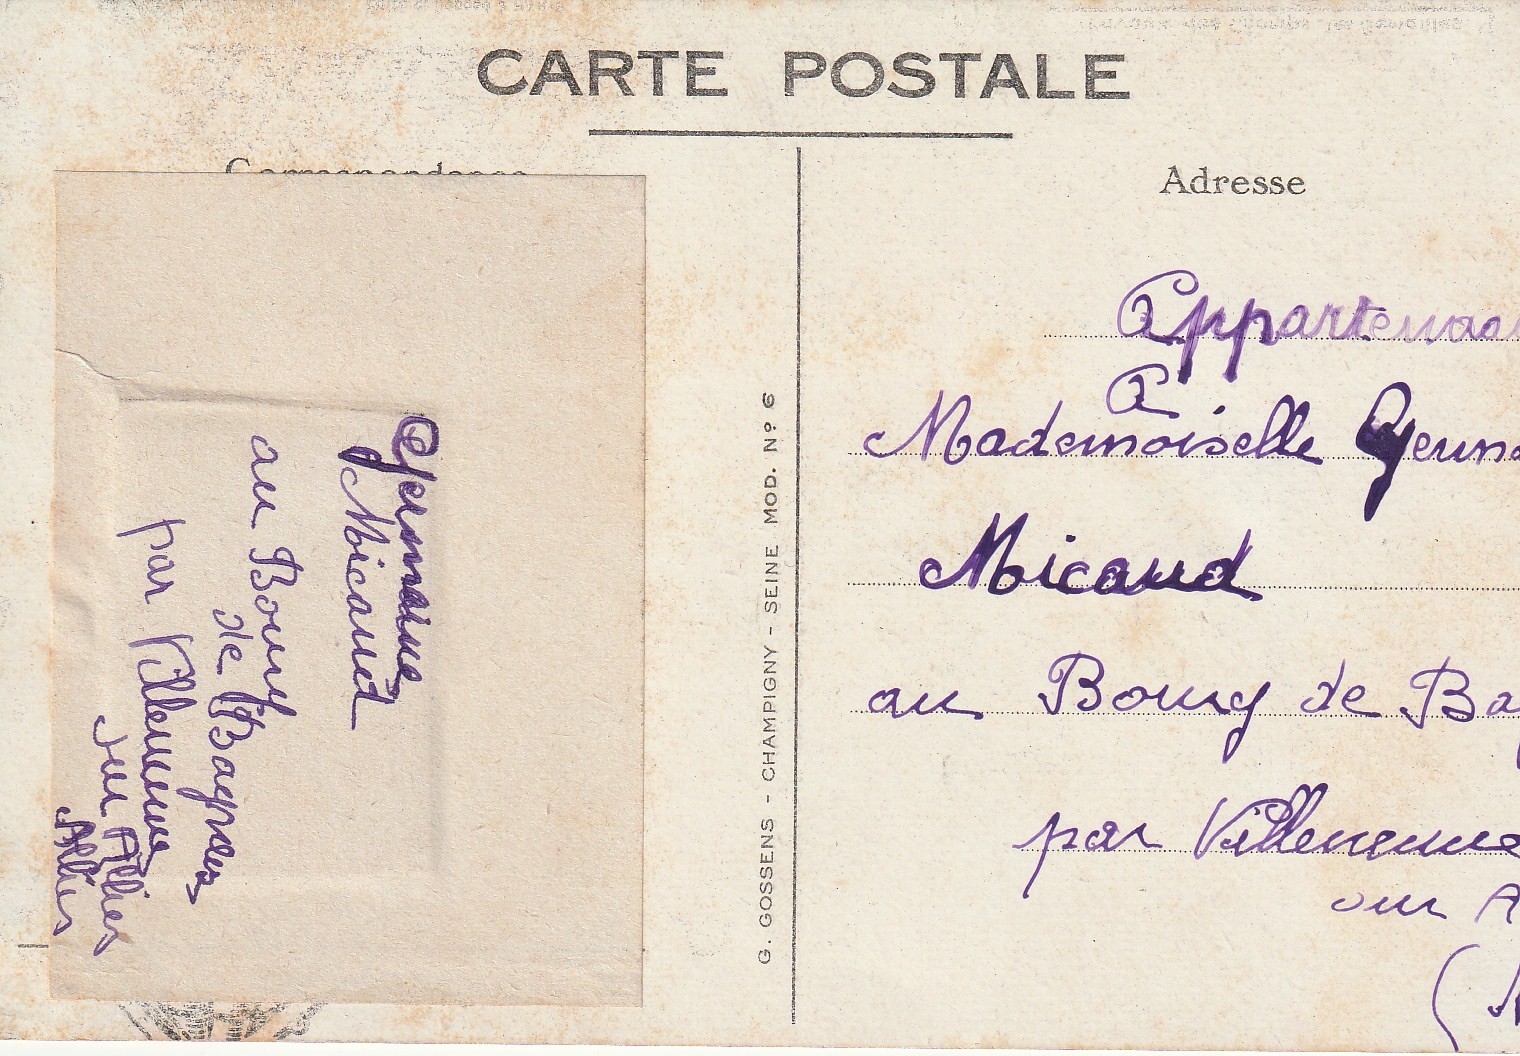 CARTE POSTALE
Correspondance
Adresse
Appartenan
à
Mademoiselle Germa
Micaud
au Bourg de Ba
par Villeneuve
sur A
(A
G. GOSSENS - CHAMPIGNY - SEINE MOD. Nº 6
Germaine
Micaud
au Bourg
de Bagneux
par Villeneuve
sur Allier
Allier